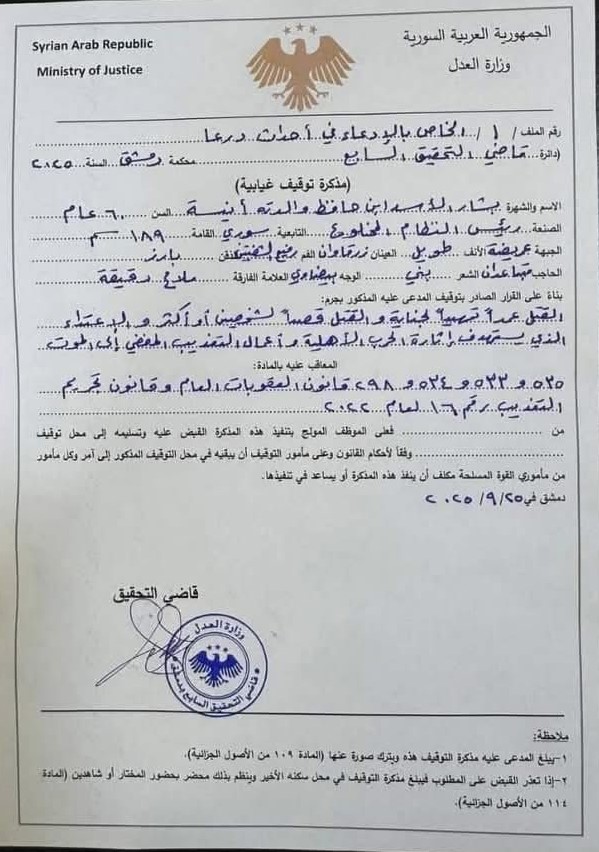 الجمهورية العربية السورية
وزارة العدل
Syrian Arab Republic
Ministry of Justice
رقم الملف / ١ / الخاص بالإدعاء في أحداث درعا
(دائرة قاضي التحقيق السابع محكمة دمشق السنة ٢٠٢٥
(مذكرة توقيف غيابية)
الاسم والشهرة بشار الأسد ابن حافظ والدته أنيسة السن ٦٠ عام
الصنعة رئيس النظام المخلوع التابعية سوري القامة ١٨٩ سم
الجبهة عريضة الأنف طويل العينان زرقاوان الفم رفيع الشفتين الذقن بارز
الحاجب الشعر بني الوجه بيضاوي العلامة الفارقة ملامح دقيقة
بناءً على القرار الصادر بتوقيف المدعى عليه المذكور بجرم:
القتل عمداً تمهيداً لجناية والقتل قصداً لشخصين أو أكثر والإعتداء
الذي يستهدف إثارة الحرب الأهلية وأعمال التعذيب المفضي إلى الموت
المعاقب عليه بالمادة:
٥٣٥ و ٥٣٣ و ٥٣٤ و ٢٩٨ قانون العقوبات العام وقانون تجريم
التعذيب رقم ١٦ لعام ٢٠٢٢
من فعلى الموظف المولج بتنفيذ هذه المذكرة القبض عليه وتسليمه إلى محل توقيف
وفقاً لأحكام القانون وعلى مأمور التوقيف أن يبقيه في محل التوقيف المذكور إلى آمر وكل مأمور
من مأموري القوة المسلحة مكلف أن ينفذ هذه المذكرة أو يساعد في تنفيذها.
دمشق في ٢٥/٩/٢٠٢٥
قاضي التحقيق
وزارة العدل
قاضي التحقيق السابع بدمشق
ملاحظة:
١-يبلغ المدعى عليه مذكرة التوقيف هذه ويترك صورة عنها (المادة ١٠٩ من الأصول الجزائية).
٢-إذا تعذر القبض على المطلوب فيبلغ مذكرة التوقيف في محل سكنه الأخير وينظم بذلك محضر بحضور المختار أو شاهدين (المادة
١١٤ من الأصول الجزائية).